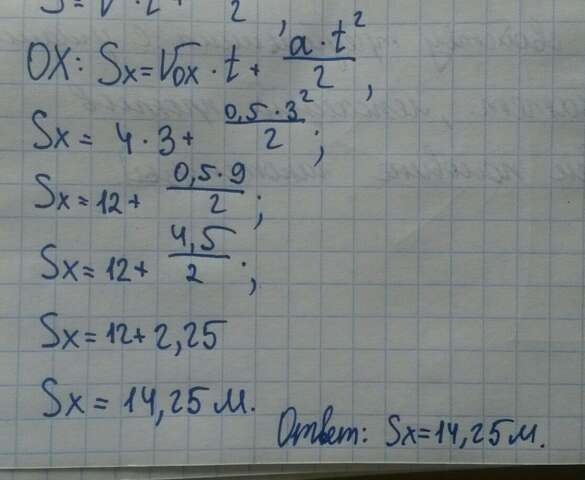 OX: Sx = V0x · t + a · t² / 2 ,
Sx = 4 · 3 + 0,5 · 3² / 2 ;
Sx = 12 + 0,5 · 9 / 2 ;
Sx = 12 + 4,5 / 2 ;
Sx = 12 + 2,25
Sx = 14,25 м.
Ответ: Sx = 14,25 м.